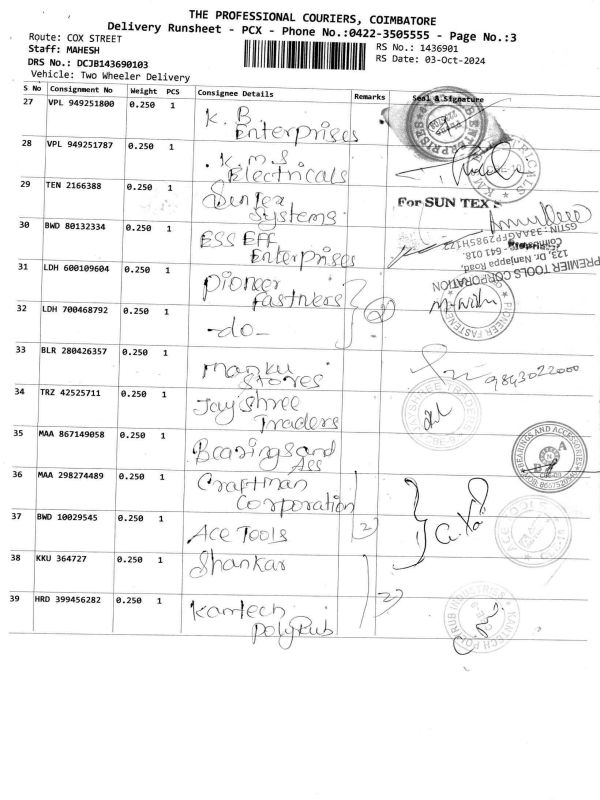 THE PROFESSIONAL COURIERS, COIMBATORE
Delivery Runsheet - PCX - Phone No.:0422-3505555 - Page No.:3
Route: COX STREET
RS No.: 1436901
Staff: MAHESH
RS Date: 03-Oct-2024
DRS No.: DCJB143690103
Vehicle: Two Wheeler Delivery
S No Consignment No Weight PCS Consignee Details Remarks Seal & Signature
27 VPL 949251800 0.250 1 K. B. Enterprises
28 VPL 949251787 0.250 1 K.M.S Electricals
29 TEN 2166388 0.250 1 Suntex Systems
For SUN TEX
30 BWD 80132334 0.250 1 ESS EFF Enterprises
GSTIN: 33AAGFP2985H1Z2
Coimbatore - 641 018.
123, Dr. Nanjappa Road,
PREMIER TOOLS CORPORATION
31 LDH 600109604 0.250 1 Pioneer Fastners
PIONEER FASTENERS
32 LDH 700468792 0.250 1 -do-
33 BLR 280426357 0.250 1 Manku Stores
9843022000
34 TRZ 42525711 0.250 1 Jayshree Traders
JAYSHREE TRADERS
CBE-9
35 MAA 867149058 0.250 1 Bearings and Ass
BEARINGS AND ACCESSORIES
36 MAA 298274489 0.250 1 Craftman Corporation
37 BWD 10029545 0.250 1 ACE TOOLS
2
ACE TOOLS
38 KKU 364727 0.250 1 Shankar
39 HRD 399456282 0.250 1 Kantech Polyrub
2
KANTECH POLYRUB INDUSTRIES